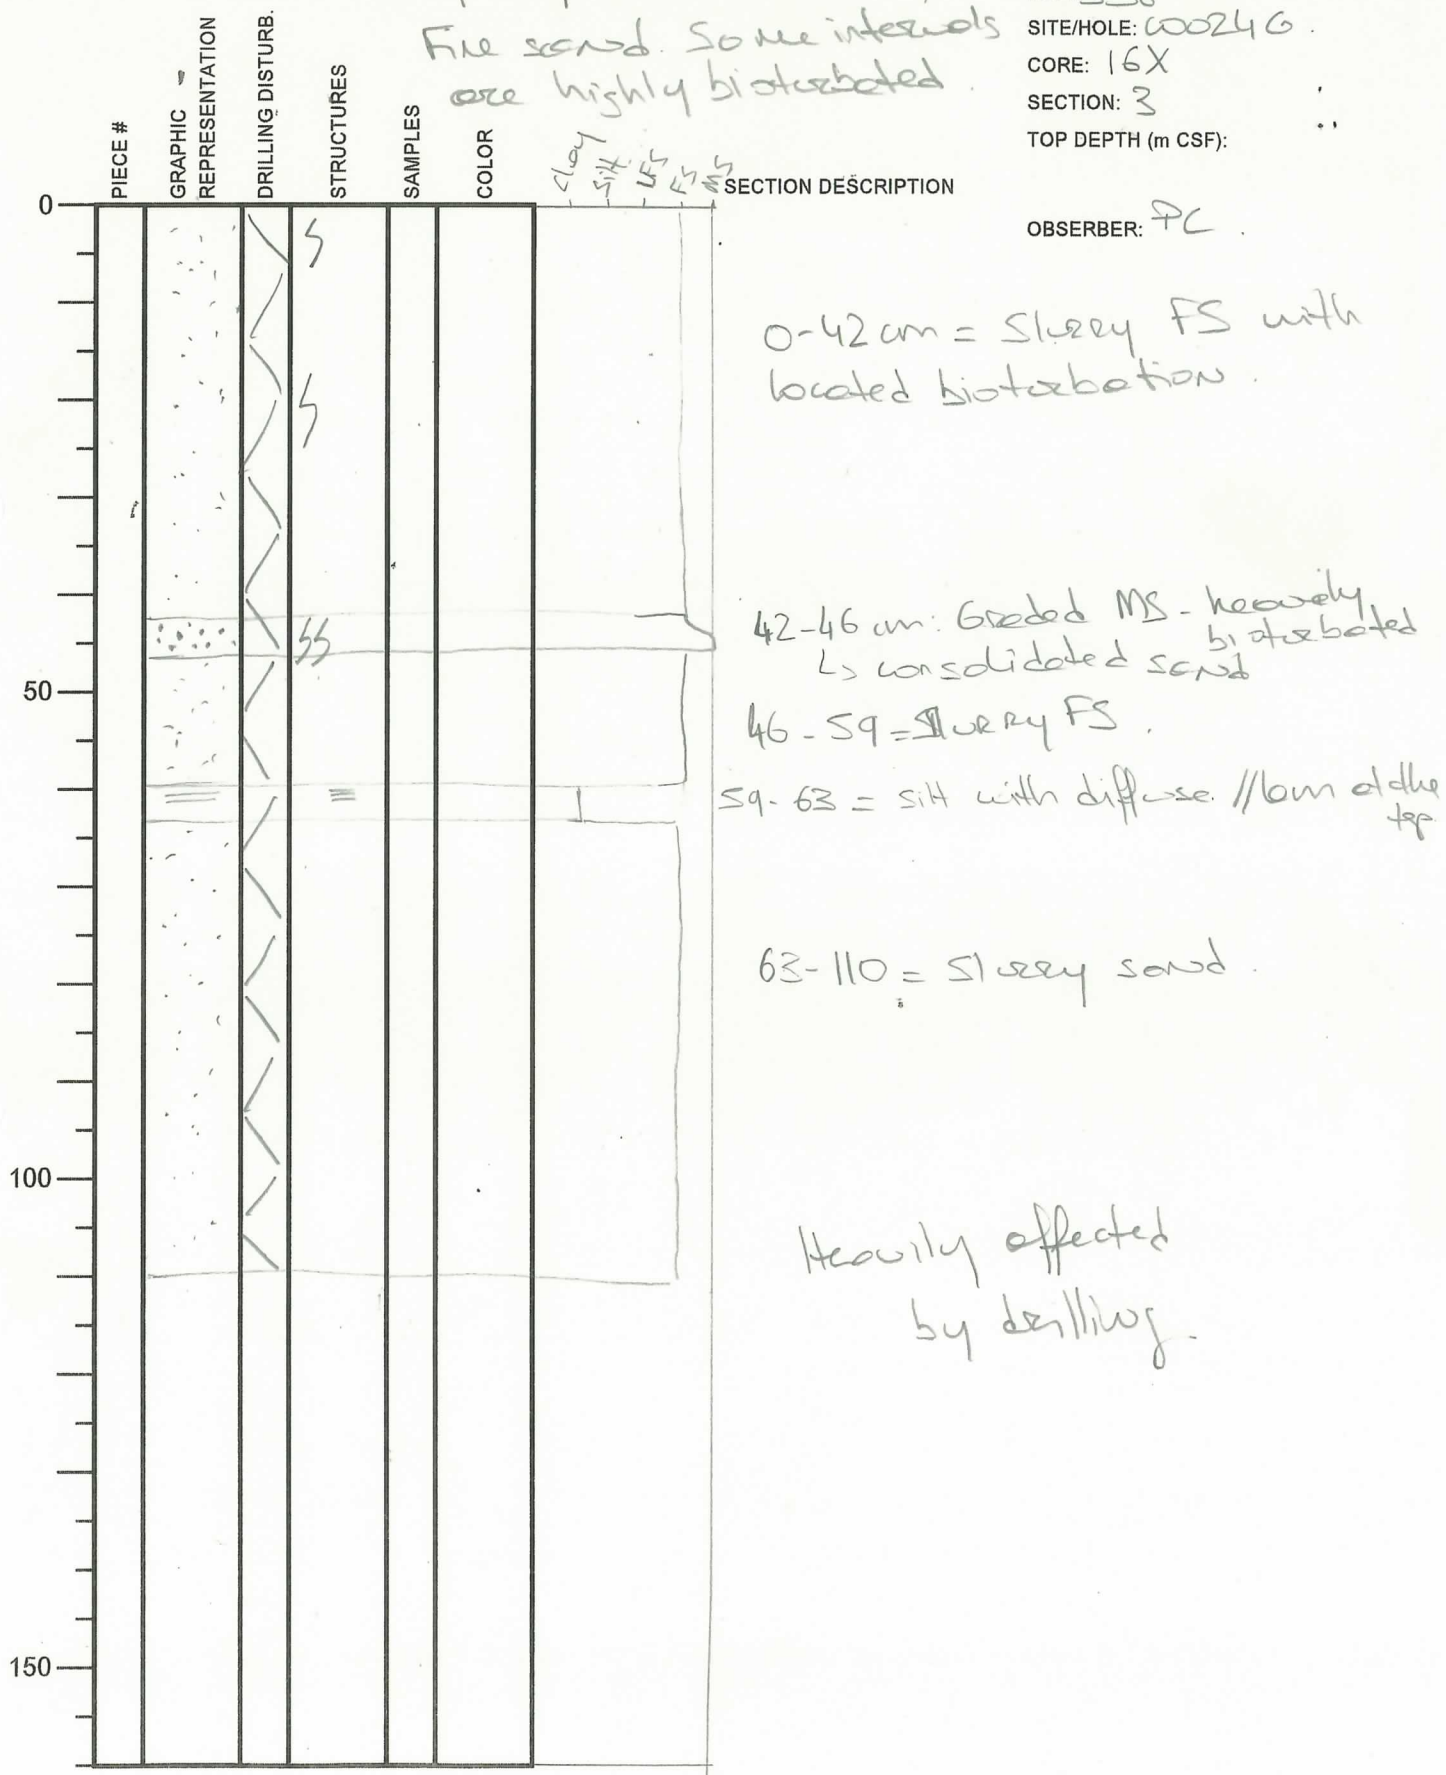 Fine sand. Some intervals
are highly bioturbated.
SITE/HOLE: C0024G.
CORE: 16X
SECTION: 3
TOP DEPTH (m CSF):
OBSERBER: PC.
PIECE #
GRAPHIC
REPRESENTATION
DRILLING DISTURB.
STRUCTURES
SAMPLES
COLOR
clay
silt
VFS
FS
MS
SECTION DESCRIPTION
0
0-42 cm = Slurry FS with
located bioturbation.
42-46 cm: Graded MS - heavely
bioturbated
↳ consolidated sand
50
46-59 = Slurry FS.
59-63 = silt with diffuse //lam at the
top
63-110 = Slurry sand.
100
Heavily affected
by drilling.
150